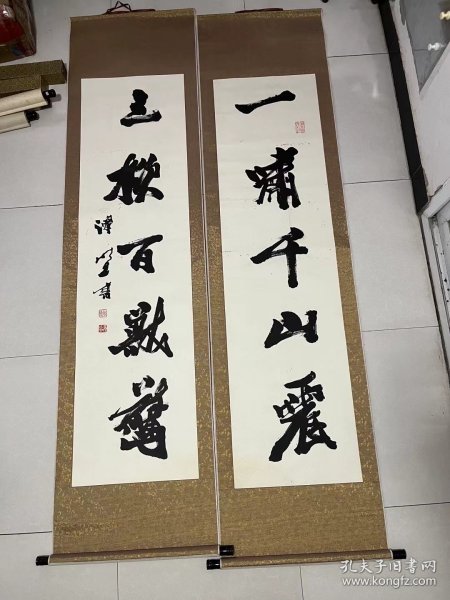 一啸千山震
三梭百獸驚
孔夫子旧书网
www.kongfz.com